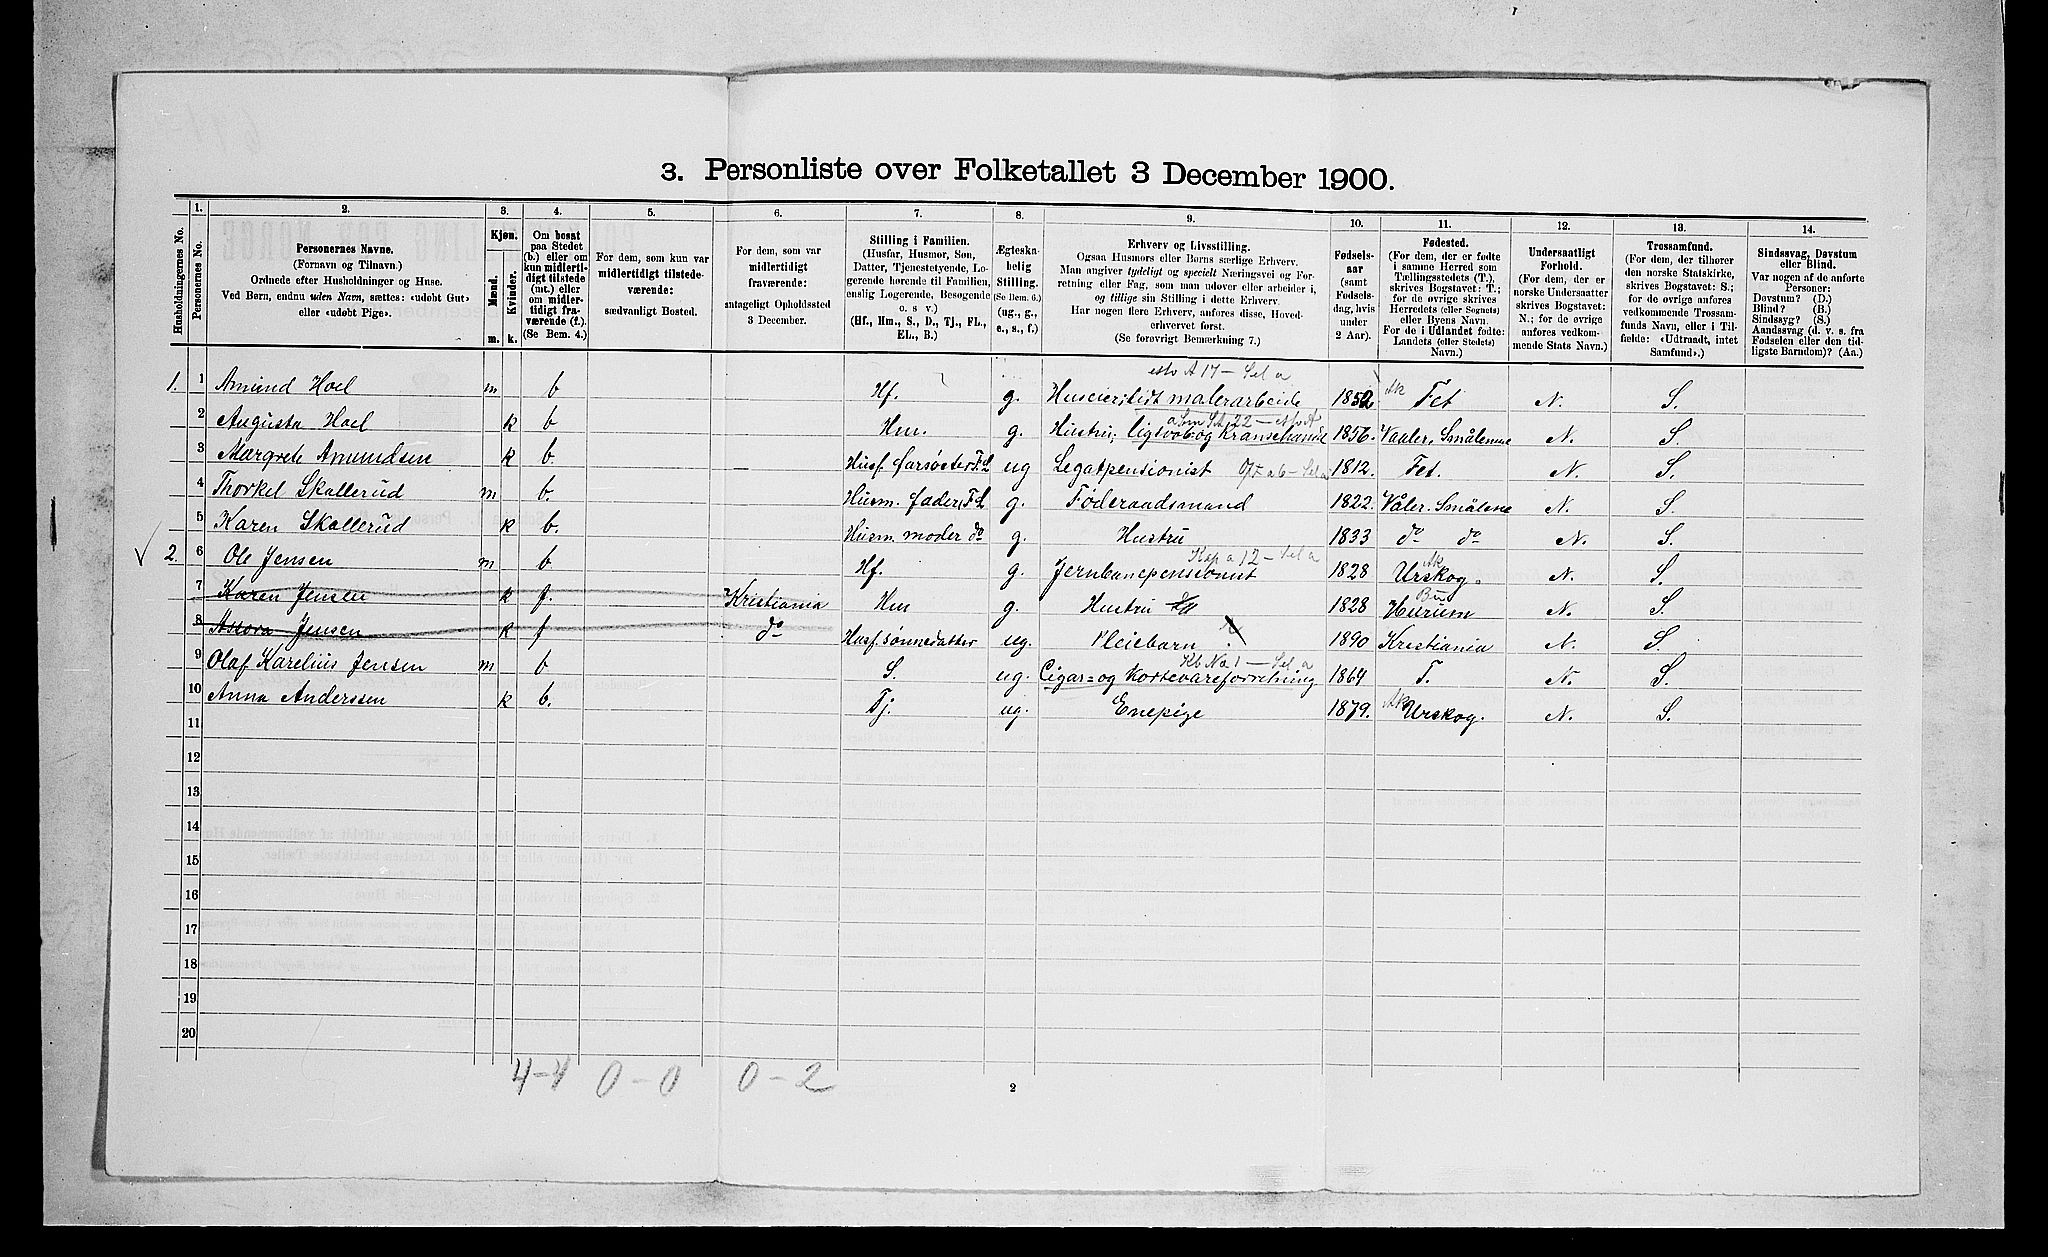 3. Personliste over Folketallet 3 December 1900.
1. 2. 3. 4. 5. 6. 7. 8. 9. 10. 11. 12. 13. 14.
Husholdningernes No.
Personernes No.
Personernes Navne.
(Fornavn og Tilnavn.)
Ordnede efter Husholdninger og Huse.
Ved Børn, endnu uden Navn, sættes: «udøbt Gut»
eller «udøbt Pige».
Kjøn.
Mænd.
Kvinder.
m. k.
Om bosat
paa Stedet
(b.) eller om
kun midlerti-
digt tilstede
(mt.) eller
om midler-
tidigt fra-
værende (f.).
(Se Bem. 4.)
For dem, som kun var
midlertidigt tilstede-
værende:
sædvanligt Bosted.
For dem, som var
midlertidigt
fraværende:
antageligt Opholdssted
3 December.
Stilling i Familien.
(Husfar, Husmor, Søn,
Datter, Tjenestetyende, Lo-
gerende hørende til Familien,
enslig Logerende, Besøgende
o. s v.)
(Hf., Hm., S., D., Tj., FL.,
EL., B.)
Ægteska-
belig
Stilling.
(Se Bem. 6.)
(ug., g.,
e., s., f.)
Erhverv og Livsstilling.
Ogsaa Husmors eller Børns særlige Erhverv.
Man angiver tydeligt og specielt Næringsvei og For-
retning eller Fag, som man udøver eller arbeider i,
og tillige sin Stilling i dette Erhverv.
Har nogen flere Erhverv, anføres disse, Hoved-
erhvervet først.
(Se forøvrigt Bemærkning 7.)
Fødsels-
aar
(samt
Fødsels-
dag, hvis
under
2 Aar).
Fødested.
(For dem, der er fødte
i samme Herred som
Tællingsstedets (T.),
skrives Bogstavet: T.;
for de øvrige skrives
Herredets (eller Sognets)
eller Byens Navn.
For de i Udlandet fødte:
Landets (eller Stedets)
Navn.)
Undersaatligt
Forhold.
(For dem, der er
norske Undersaatter
skrives Bogstavet:
N.; for de øvrige
anføres vedkom-
mende Stats Navn.)
Trossamfund.
(For dem, der tilhører
den norske Statskirke,
skrives Bogstavet: S.;
for de øvrige anføres
vedkommende Trossam-
funds Navn, eller i Til-
fælde: «Udtraadt, intet
Samfund».)
Sindssvag, Døvstum
eller Blind.
Var nogen af de anførte
Personer:
Døvstum? (D.)
Blind? (B.)
Sindssyg? (S.)
Aandssvag (d. v. s. fra
Fødselen eller den tid-
ligste Barndom)? (Aa.)
1. 1 Amund Hoel m b Hf. g. Huseier, lidt malerarbeide 1852 Ak Fet N. S.
2 Augusta Hoel k b Hm. g. Hustru, ligsvøb og Kransehandel 1856. Vaaler. Smålenene N. S.
3 Margrete Amundsen k b. Husf. farsøster F.L ug Legatpensionist 1812. Fet. N. S.
4 Thorkel Skallerud m b. Husm. fader, F.L g. Føderaadsmand 1822. Våler. Smålene N. S.
5 Karen Skallerud k b. Husm. moder do g. Hustru 1833 do do N. S.
2. 6 Ole Jensen m b Hf. g. Jernbanepensionist 1828 Ak Urskog. N. S.
7 Karen Jensen k f. Kristiania Hm g. Hustru 1828 Bu Hurum N. S.
8 Jensen k f do Husf. sønnedatter ug. Pleiebarn 1890 Kristiania N. S.
9 Olaf Karelius Jensen m b S. ug. Cigar= og Kortevareforretning 1864 T. N. S.
10 Anna Anderssen k b. Tj. ug. Enepige 1879. Ak Urskog. N. S.
11
12
13
14
15
16
17
18
19
20
4-4 0-0 0-2
2